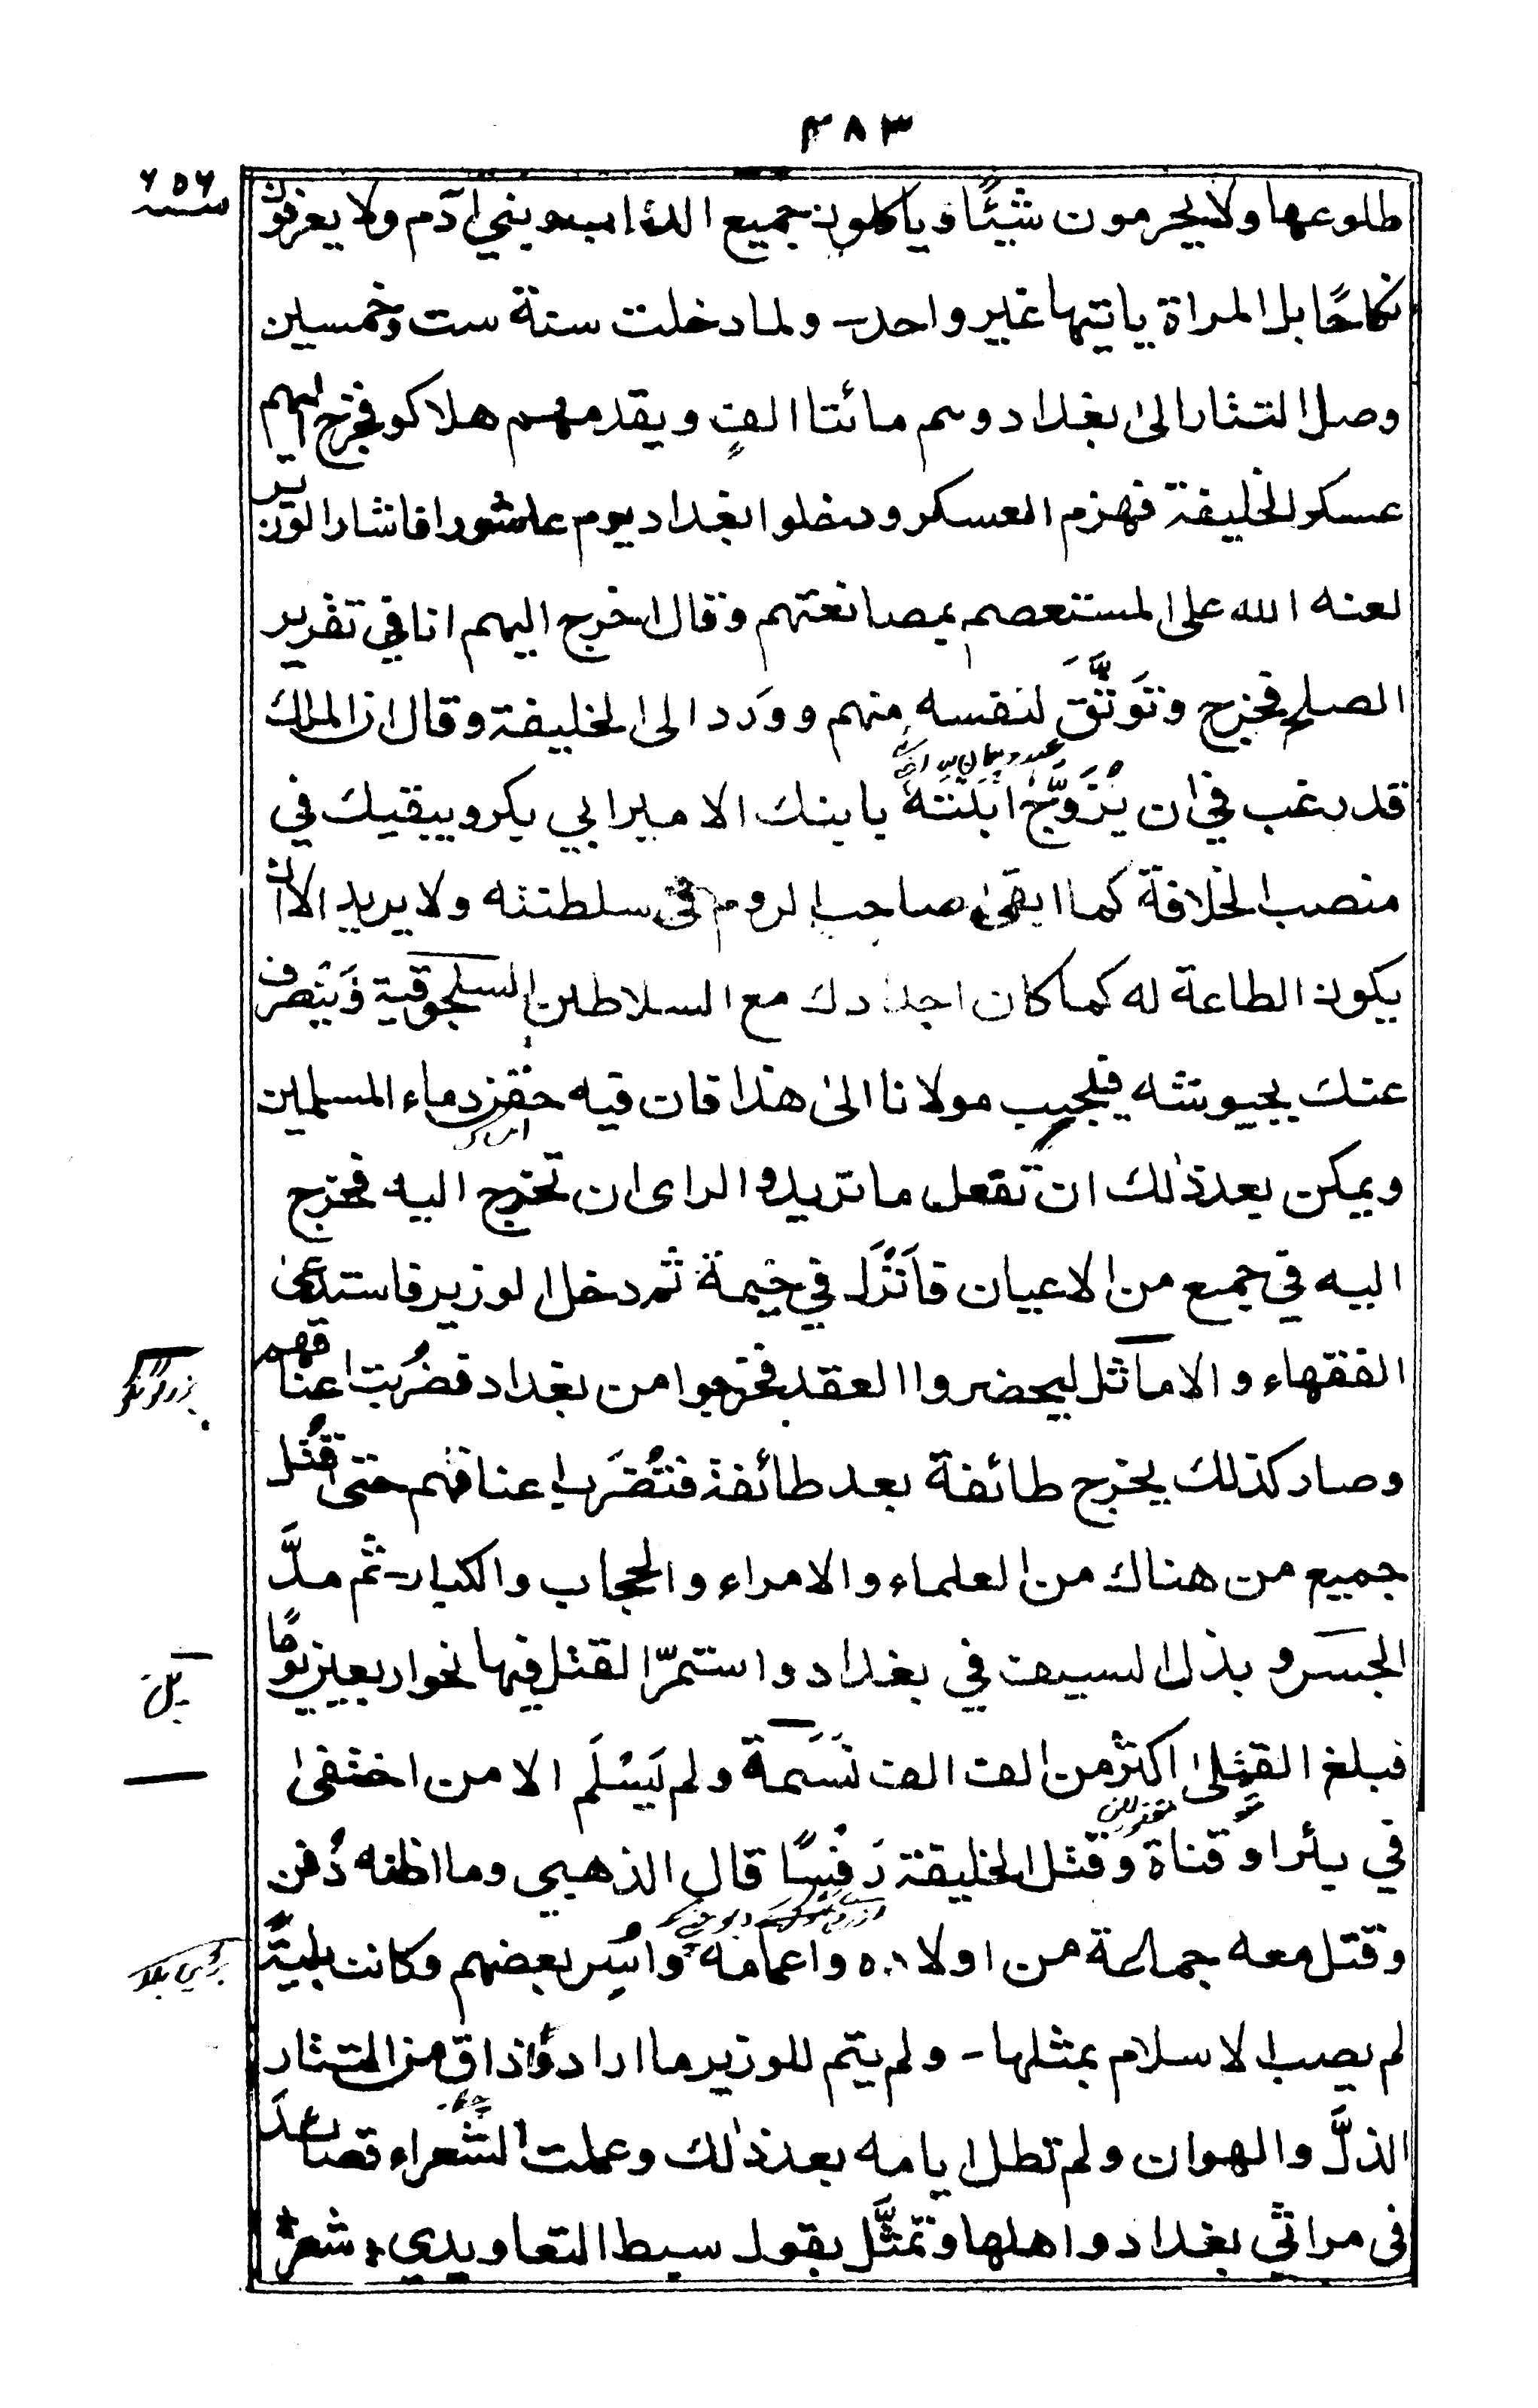 ۳۸۳
سنة ۶۵۶
طلوعها ولا يحرمون شيئًا و ياكلون جميع الدواب وبني آدم ولا يعرفون
نكاحًا بل المراة ياتيها غير واحد ـ ولما دخلت سنة ست وخمسين
وصل التتار الىٰ بغداد وهم مائتا الفٍ ويقدمهم هلاكو فخرج اليهم
عسكر الخليفة فهزم العسكر ودخلوا بغداد يوم عاشورا فاشار الوزير
لعنه الله على المستعصم بمصانعتهم وقال اخرج اليهم انا في تقرير
الصلح فخرج وتَوَثَّقَ لنفسه منهم ووَرد الى الخليفة وقال ان الملك
قد رغب في ان يُزَوِّجَ ابْنَتَهٗ بابنك الامير ابي بكر ويبقيك في
منصب الخلافة كما ابقىٰ صاحب الروم في سلطنته ولا يريد الا ان
يكون الطاعة له كما كان اجدادك مع السلاطين السلجوقية وَيَنْصرف
عنك بجيوشه فليجيب مولانا الىٰ هٰذا فان فيه حقن دماء المسلمين
ويمكن بعد ذٰلك ان تفعل ما تريد والراى ان تخرج اليه فخرج
اليه في جمع من الاعيان فاَنْزَل في خيمة ثم دخل الوزير فاستدعىٰ
الفقهاء و الاماثل ليحضروا العقد فخرجوا من بغداد فضُربت اعناقهم
وصار كذلك يخرج طائفة بعد طائفة فتُضْرَب اعناقهم حتى قُتل
جميع من هناك من العلماء و الامراء و الحجاب والكبار ـ ثم مدَّ
الجسر و بذل السيف في بغداد واستمرّ القتل فيها نحو اربعين يومًا
فبلغ القتلىٰ اكثر من الف الف نَسَمة ولم يَسْلَم الا من اختفىٰ
في بئر او قناة وقتل الخليفة رَفْسًا قال الذهبي وما اظنه دُفن
وقتل معه جماعة من اولاده واعمامه واُسِر بعضهم وكانت بليةً
لم يصب الاسلام بمثلها ـ ولم يتم للوزير ما اراد وذاق من التتار
الذلَّ والهوان ولم تطل ايامه بعد ذٰلك وعملت الشُعراء قصائدَ
فى مراثي بغداد و اهلها وتمَثَّل بقول سبط التعاويذي ؛ شعر